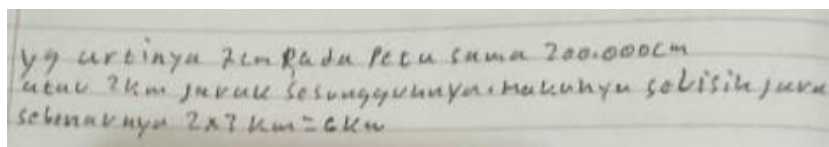 yg artinya 1cm pada Peta sama 200.000cm
atau 2km jarak sesungguhnya. makanya selisih jara
sebenarnya 2x3 km = 6km